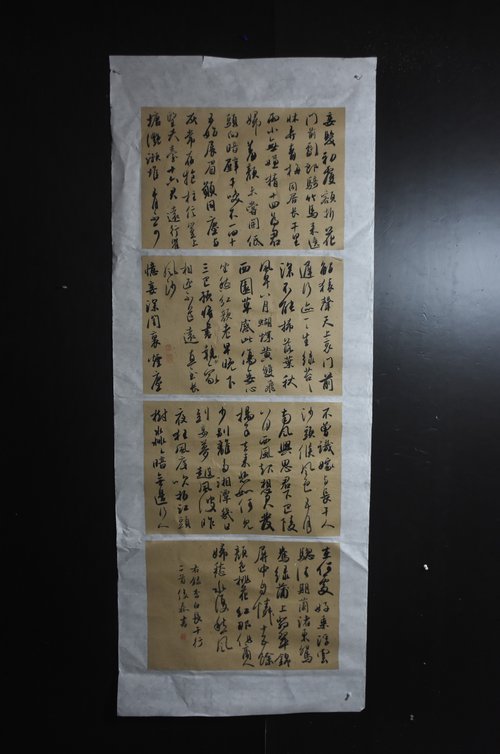 妾髮初覆額折花
門前劇郎騎竹馬來遶
牀弄青梅同居長干里
兩小無嫌猜十四為君
婦羞顏未嘗開低
頭向暗壁千喚不一回十
五始展眉願同塵與
灰常存抱柱信豈上
望夫臺十六君遠行瞿
塘灩澦堆五月不可
觸猿聲天上哀門前
遲行跡一一生綠苔苔
深不能掃落葉秋
風早八月蝴蝶黃雙飛
西園草感此傷妾心
坐愁紅顏老早晚下
三巴預將書報家
相迎不道遠直至長
風沙
憶妾深閨裏煙塵
不曾識嫁與長干人
沙頭候風色五月
南風興思君下巴陵
八月西風起想君發
揚子去來悲如何見
少別離多湘潭幾日
到妾夢越風波昨
夜狂風度吹折江頭
樹淼淼暗無邊行人
在何處好乘浮雲
驄佳期蘭渚東鴛
鴦綠蒲上翡翠錦
屏中自憐十五餘
顏色桃花紅那作商人
婦愁水復愁風
右錄李白長干行
二首書